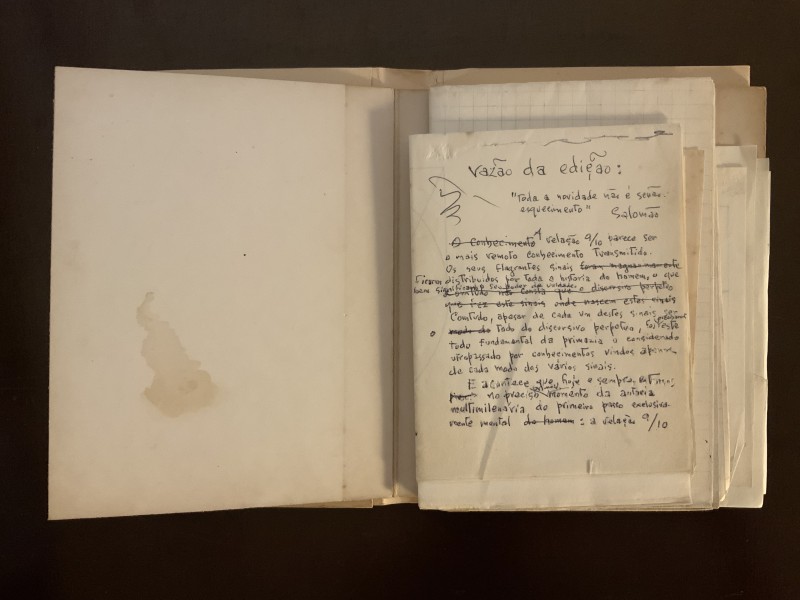 Vazão da edição:
"Toda a novidade não é senão
esquecimento" Salomão
O Conhecimento A relação 9/10 parece ser
o mais remoto conhecimento transmitido.
Os seus flagrantes sinais
foram distribuidos por toda a historia do homem, o que
bem significando seu poder de unidade.
Contudo não
que fez este sinais onde nascem estes sinais
Comtudo, apesar de cada um destes sinais ser
modo do todo do discorsivo perpetuo, foi este
todo fundamental da primazia o considerado
utrapassado por conhecimentos vindos apenas
de cada modo dos vários sinais.
E acontece que hoje e sempre,
no preciso momento da autoria
multimilenária do primeiro passo exclusiva
mente mental do homem: a relação 9/10